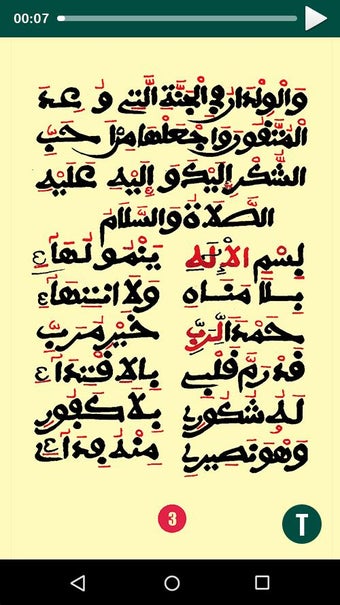 00:07
والولدان في الجنة التي وعد
المتقون واجعلها من احب
الشكر إليك و إليه عليه
الصلاة والسلام
بسم الإله ينمو لهاء
بلا مناه ولا انتهاء
حمد الرب خير مرب
قد رم قلبي بالاقتداء
له شكور بلا كفور
وهو نصير منه فداء
3
T